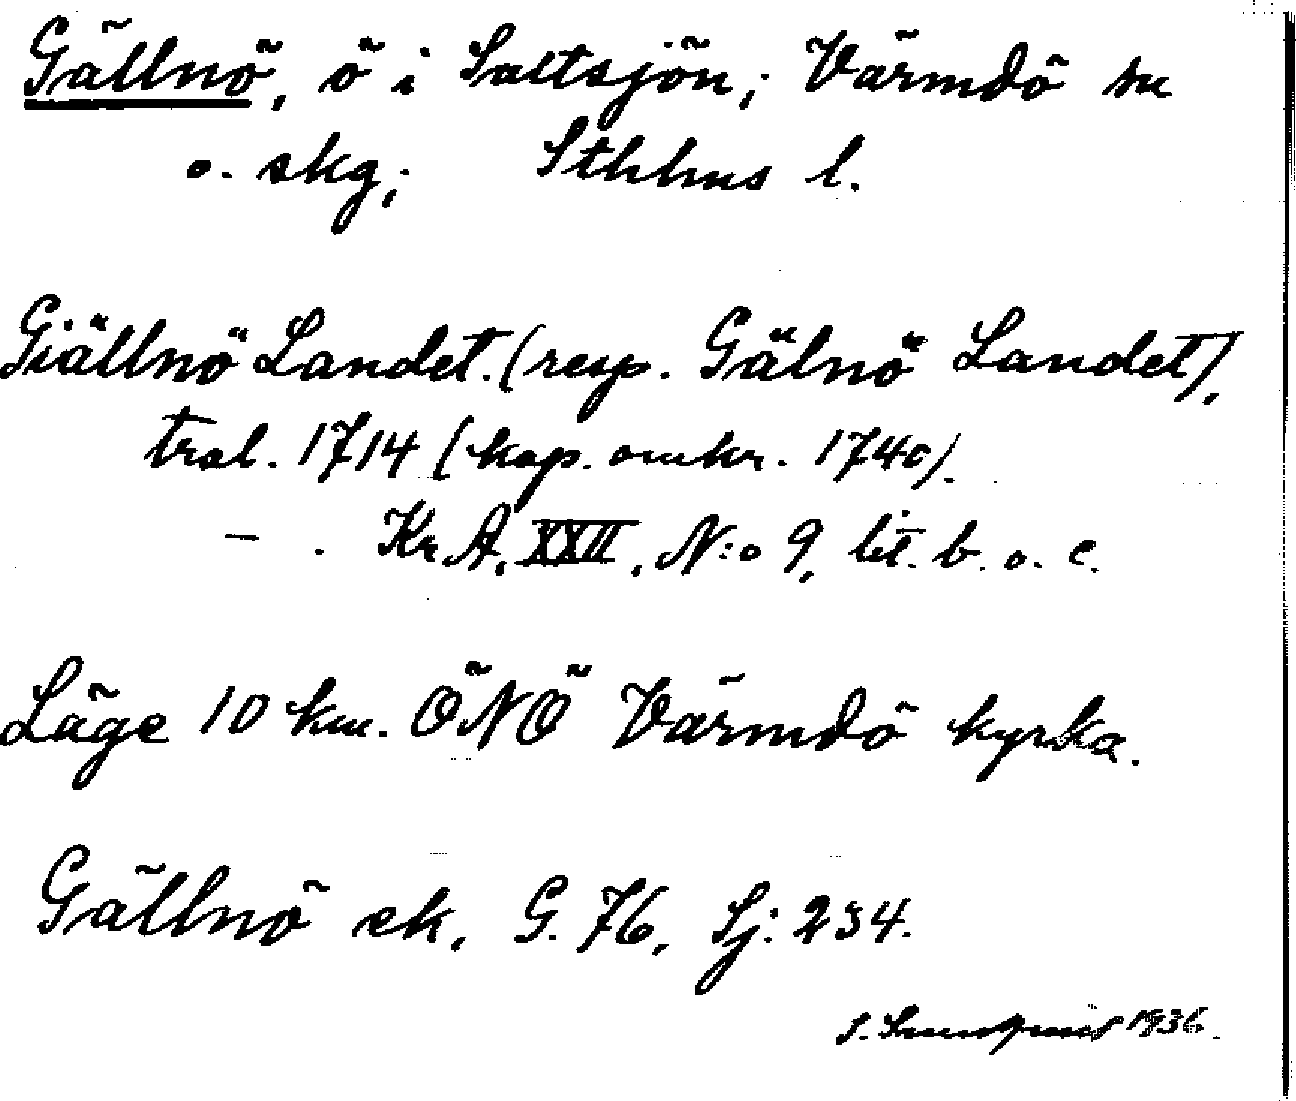 Gällnö, ö i Saltsjön; Värmdö sn
o. skg; Sthlms l.
Giällnö Landet. (resp. Gälnö Landet),
tral. 1714 (kop. omkr. 1740).
— . Kr. A. XXII, N:o 9, lit. b. o. c.
Läge 10 km. ÖNÖ Värmdö kyrka.
Gällnö ek. G. 76, Sj: 234.
1936.